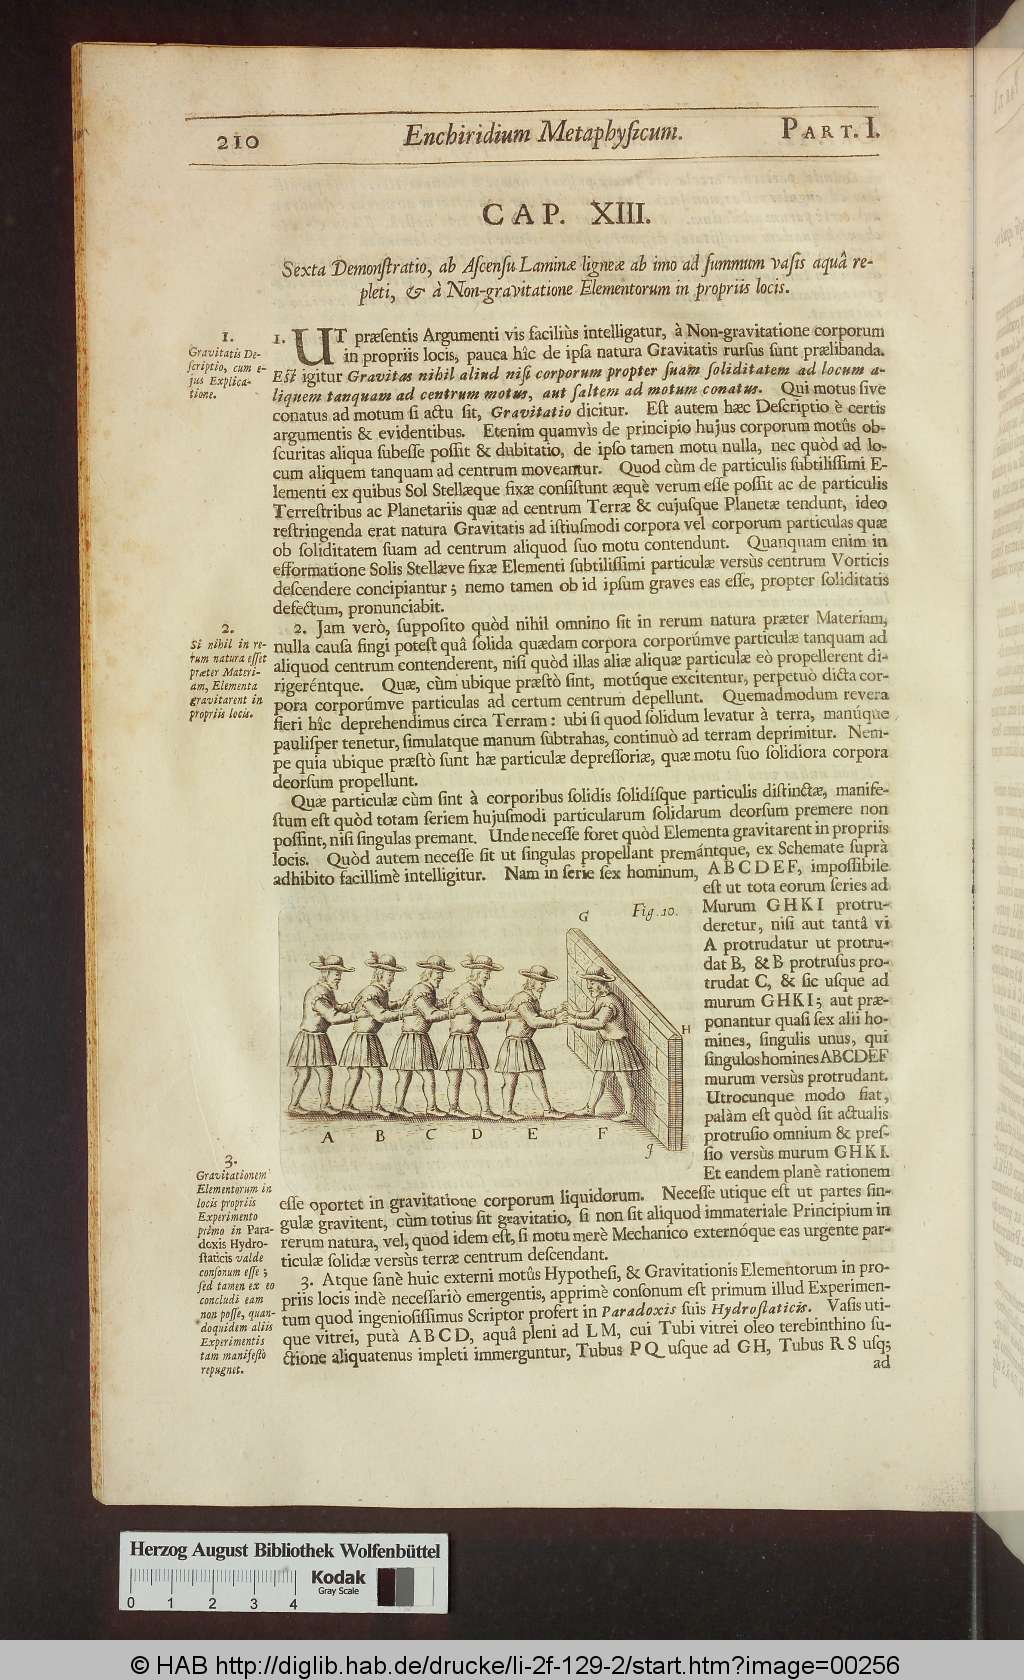 210 Enchiridium Metaphyſicum. PART. I.
CAP. XIII.
Sexta Demonſtratio, ab Aſcenſu Laminæ ligneæ ab imo ad ſummum vaſis aquâ re-
pleti, & à Non-gravitatione Elementorum in propriis locis.
1.
Gravitatis De-
ſcriptio, cum e-
jus Explica-
tione.
1. UT præſentis Argumenti vis faciliùs intelligatur, à Non-gravitatione corporum
in propriis locis, pauca hîc de ipſa natura Gravitatis rurſus ſunt prælibanda.
Eſt igitur Gravitas nihil aliud niſi corporum propter ſuam ſoliditatem ad locum a-
liquem tanquam ad centrum motus, aut ſaltem ad motum conatus. Qui motus ſive
conatus ad motum ſi actu ſit, Gravitatio dicitur. Eſt autem hæc Deſcriptio è certis
argumentis & evidentibus. Etenim quamvìs de principio hujus corporum motûs ob-
ſcuritas aliqua ſubeſſe poſſit & dubitatio, de ipſo tamen motu nulla, nec quòd ad lo-
cum aliquem tanquam ad centrum moveantur. Quod cùm de particulis ſubtiliſſimi E-
lementi ex quibus Sol Stellæque fixæ conſiſtunt æquè verum eſſe poſſit ac de particulis
Terreſtribus ac Planetariis quæ ad centrum Terræ & cujuſque Planetæ tendunt, ideo
reſtringenda erat natura Gravitatis ad iſtiuſmodi corpora vel corporum particulas quæ
ob ſoliditatem ſuam ad centrum aliquod ſuo motu contendunt. Quanquam enim in
efformatione Solis Stellæve fixæ Elementi ſubtiliſſimi particulæ versùs centrum Vorticis
deſcendere concipiantur; nemo tamen ob id ipſum graves eas eſſe, propter ſoliditatis
defectum, pronunciabit.
2.
Si nihil in re-
rum natura eſſet
præter Materi-
am, Elementa
gravitarent in
propriis locis.
2. Jam verò, ſuppoſito quòd nihil omnino ſit in rerum natura præter Materiam,
nulla cauſa fingi poteſt quâ ſolida quædam corpora corporúmve particulæ tanquam ad
aliquod centrum contenderent, niſi quòd illas aliæ aliquæ particulæ eò propellerent di-
rigeréntque. Quæ, cùm ubique præſtò ſint, motúque excitentur, perpetuò dicta cor-
pora corporúmve particulas ad certum centrum depellunt. Quemadmodum revera
fieri hîc deprehendimus circa Terram: ubi ſi quod ſolidum levatur à terra, manúque
pauliſper tenetur, ſimulatque manum ſubtrahas, continuò ad terram deprimitur. Nem-
pe quia ubique præſtò ſunt hæ particulæ depreſſoriæ, quæ motu ſuo ſolidiora corpora
deorſum propellunt.
Quæ particulæ cùm ſint à corporibus ſolidis ſolidíſque particulis diſtinctæ, manife-
ſtum eſt quòd totam ſeriem hujuſmodi particularum ſolidarum deorſum premere non
poſſint, niſi ſingulas premant. Unde neceſſe foret quòd Elementa gravitarent in propriis
locis. Quòd autem neceſſe ſit ut ſingulas propellant premántque, ex Schemate ſuprà
adhibito facillimè intelligitur. Nam in ſerie ſex hominum, ABCDEF, impoſſibile
eſt ut tota eorum ſeries ad
Murum GHKI protru-
deretur, niſi aut tantâ vi
A protrudatur ut protru-
dat B, & B protruſus pro-
trudat C, & ſic uſque ad
murum GHKI; aut præ-
ponantur quaſi ſex alii ho-
mines, ſingulis unus, qui
ſingulos homines ABCDEF
murum versùs protrudant.
Utrocunque modo fiat,
palàm eſt quòd ſit actualis
protruſio omnium & preſ-
ſio versùs murum GHKI.
Et eandem planè rationem
Fig. 10.
G
H
A B C D E F
g
3.
Gravitationem
Elementorum in
locis propriis
Experimento
primo in Para-
doxis Hydro-
ſtaticis valde
conſonum eſſe;
ſed tamen ex eo
concludi eam
non poſſe, quan-
doquidem aliis
Experimentis
tam manifeſtò
repugnet.
eſſe oportet in gravitatione corporum liquidorum. Neceſſe utique eſt ut partes ſin-
gulæ gravitent, cùm totius ſit gravitatio, ſi non ſit aliquod immateriale Principium in
rerum natura, vel, quod idem eſt, ſi motu merè Mechanico externóque eas urgente par-
ticulæ ſolidæ versùs terræ centrum deſcendant.
3. Atque ſanè huic externi motûs Hypotheſi, & Gravitationis Elementorum in pro-
priis locis indè neceſſariò emergentis, apprimè conſonum eſt primum illud Experimen-
tum quod ingenioſiſſimus Scriptor profert in Paradoxis ſuis Hydroſtaticis. Vaſis uti-
que vitrei, putà ABCD, aquâ pleni ad LM, cui Tubi vitrei oleo terebinthino ſu-
ctione aliquatenus impleti immerguntur, Tubus PQ uſque ad GH, Tubus RS uſq;
ad
Herzog August Bibliothek Wolfenbüttel
Kodak
Gray Scale
0 1 2 3 4
© HAB http://diglib.hab.de/drucke/li-2f-129-2/start.htm?image=00256